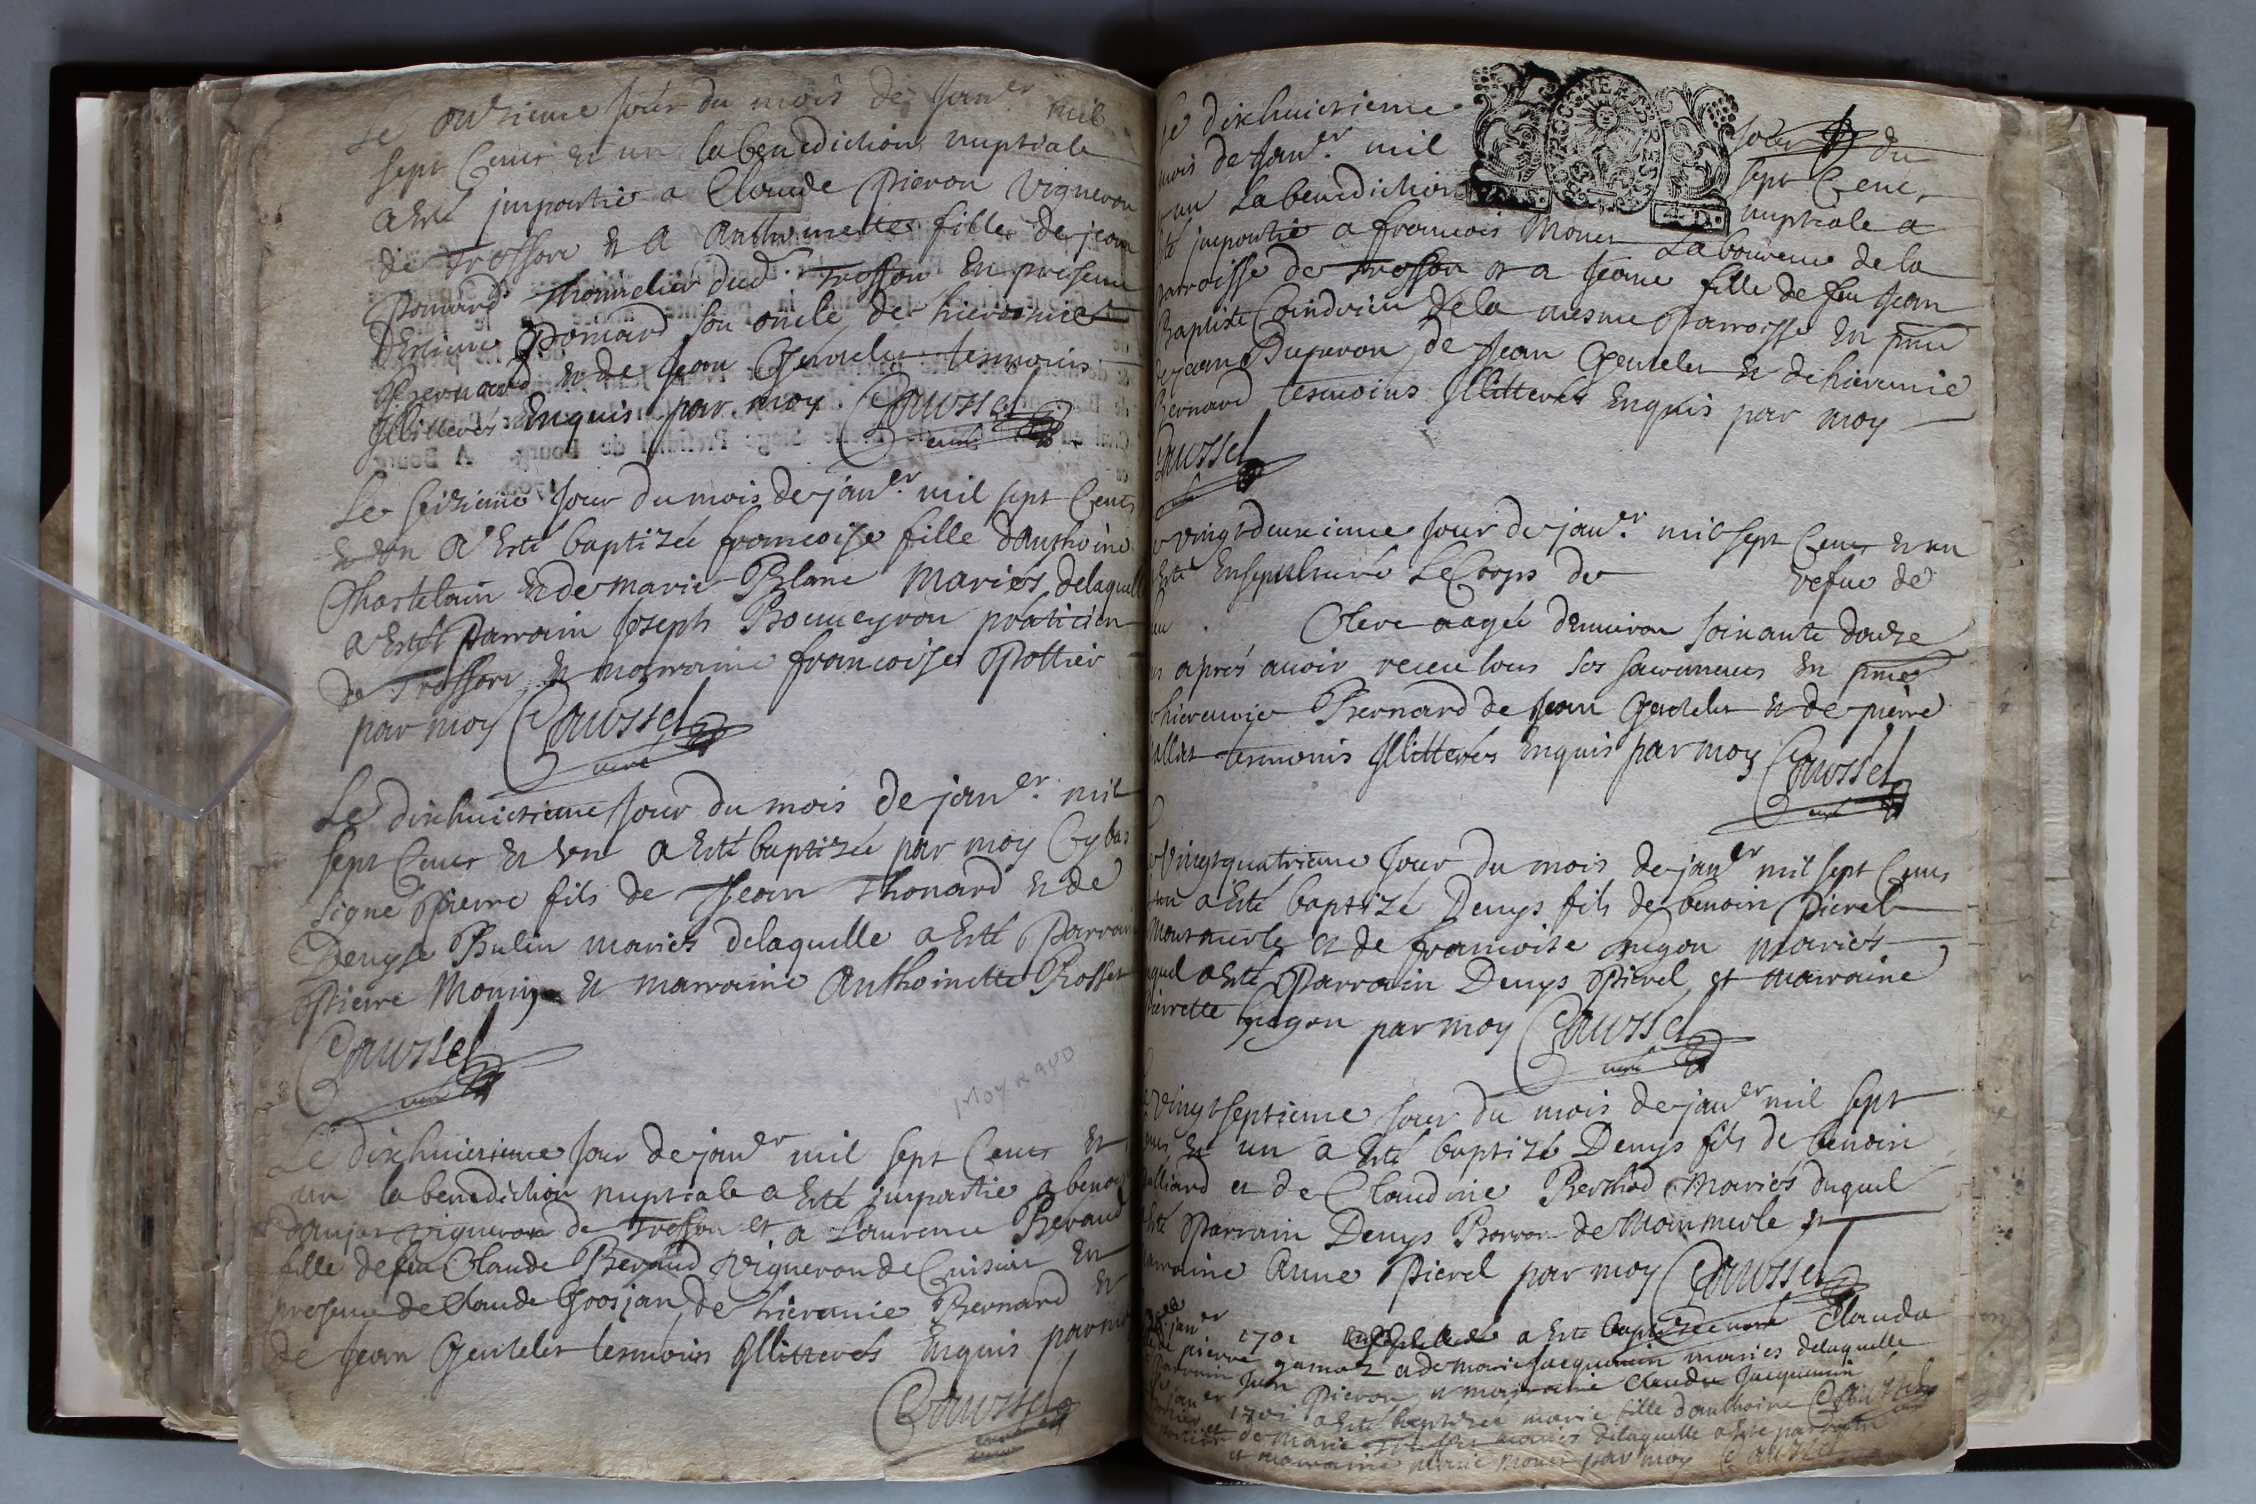 Le onzieme jour du mois de janer mil
sept cens et un la benediction nuptiale
a esté impartie a Claude Pieron vigneron
de Troffon et a Anthoinette fille de jean
Ponard thonnelier dud. Troffon en presence
d'Estienne Ponard son oncle, de hieremie
Bernard et de Jean Gentelet tesmoins
Illitterés enquis par moy Caussel
curé
Le seizieme jour du mois de janer mil sept cens
et un a esté baptizée francoise fille d'anthoine
Chastelain et de marie Blanc mariés de laquelle
a esté Parrain Joseph Bonneyron praticien
de Troffon et marraine francoise Pottier
par moy Caussel
curé
Le dixhuictieme jour du mois de janer mil
sept cens et un a esté baptizé par moy cy bas
signé Pierre fils de Jean Thonard et de
Denyse Bulin mariés de laquelle a esté Parrain
Pierre Monin et marraine Anthoinette Rosset
Caussel
curé
MOYRAUD
Le dixhuictieme jour de janer mil sept cens et
un la benediction nuptiale a esté impartie a benoit
danjar vigneron de Troffon et a Laurence Beraud
fille de feu Claude Beraud vigneron de Cuisiat en
presence de Claude Grosjan, de hieremie Bernard et
de Jean Gentelet tesmoins Illitterés enquis par moy
Caussel
curé
Le dixhuictieme jour du
mois de janer mil sept cens
un La benediction nuptiale a
esté impartie a francois Monet Laboureur de la
parroisse de Troffon et a Jeane fille de feu Jean
Baptiste Coindrieu de la mesme Parroisse en pnce
de jean Duperon, de Jean Gentelet et de hieremie
Bernard tesmoins Illitterés enquis par moy
Caussel
curé
vingtdeuxieme jour de janer mil sept cens et un
esté ensepulturé Le Corps de vefue de
Clerc aagée d'environ soixante douze
ans aprés auoir receu tous ses sacremens en pnce
hieremie Bernard de Jean Gentelet et de pierre
tesmoins Illitterés enquis par moy Caussel
curé
vingtquatrieme jour du mois de janer mil sept cens
un a esté baptizé Denys fils de benoin Pierel
Monmerle et de francoise hugon mariés
duquel a esté Parrain Denys Pierel et marraine
Pierrette hugon par moy Caussel
curé
vingtseptieme jour du mois de janer mil sept
cens et un a esté baptizé Denys fils de benoin
et de Claudine Berthod mariés duquel
esté Parrain Denys Borron de Monmerle et
marraine Anne Pierel par moy Caussel
janer 1701 a esté baptizée Claudа
de pierre gamoz et de marie Jacquemin mariés de laquelle
Parrain Jean Pieron et marraine Claudа Jacquemin
janer 1701 a esté baptizée marie fille d'anthoine Caussel
et de marie mariés de laquelle a esté parrain
et marraine marie Monet par moy Caussel